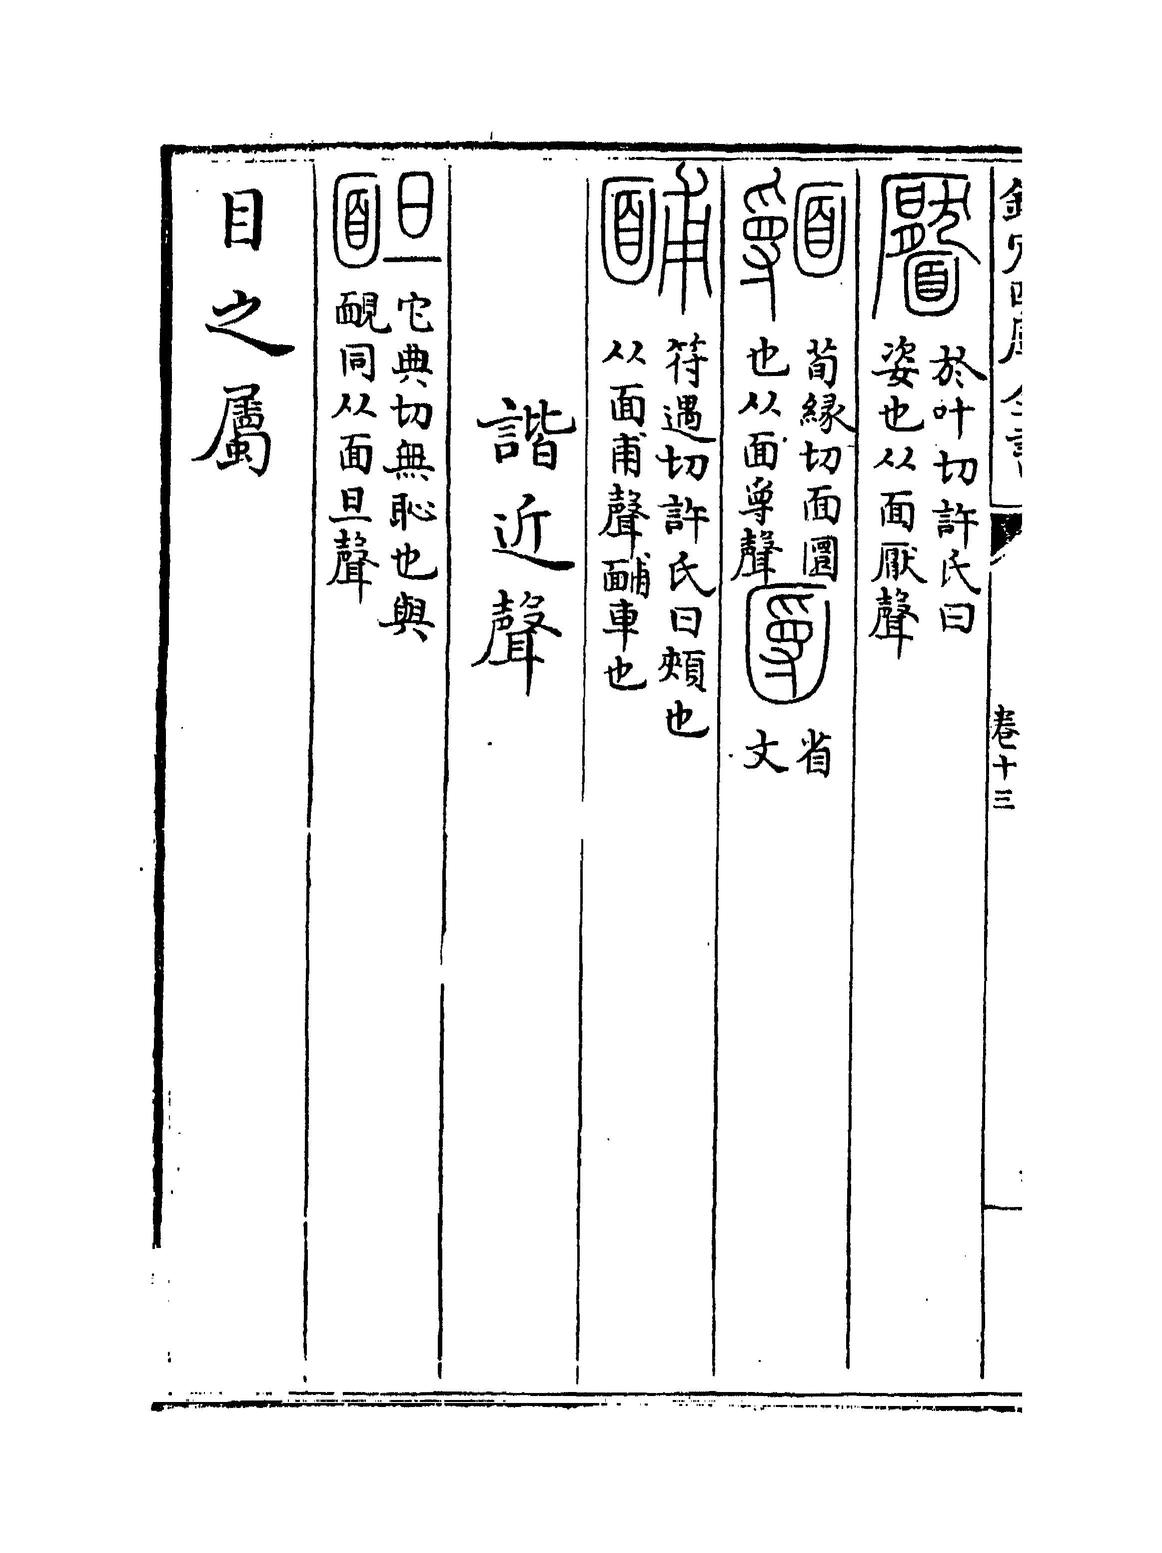 欽定四庫全書
卷十三
於叶切許氏曰
姿也从面厭聲
荀縁切面圜
也从面聲
省
文
符遇切許氏曰頰也
从面甫聲䩉車也
諧近聲
它典切無恥也與
靦同从面旦聲
目之屬